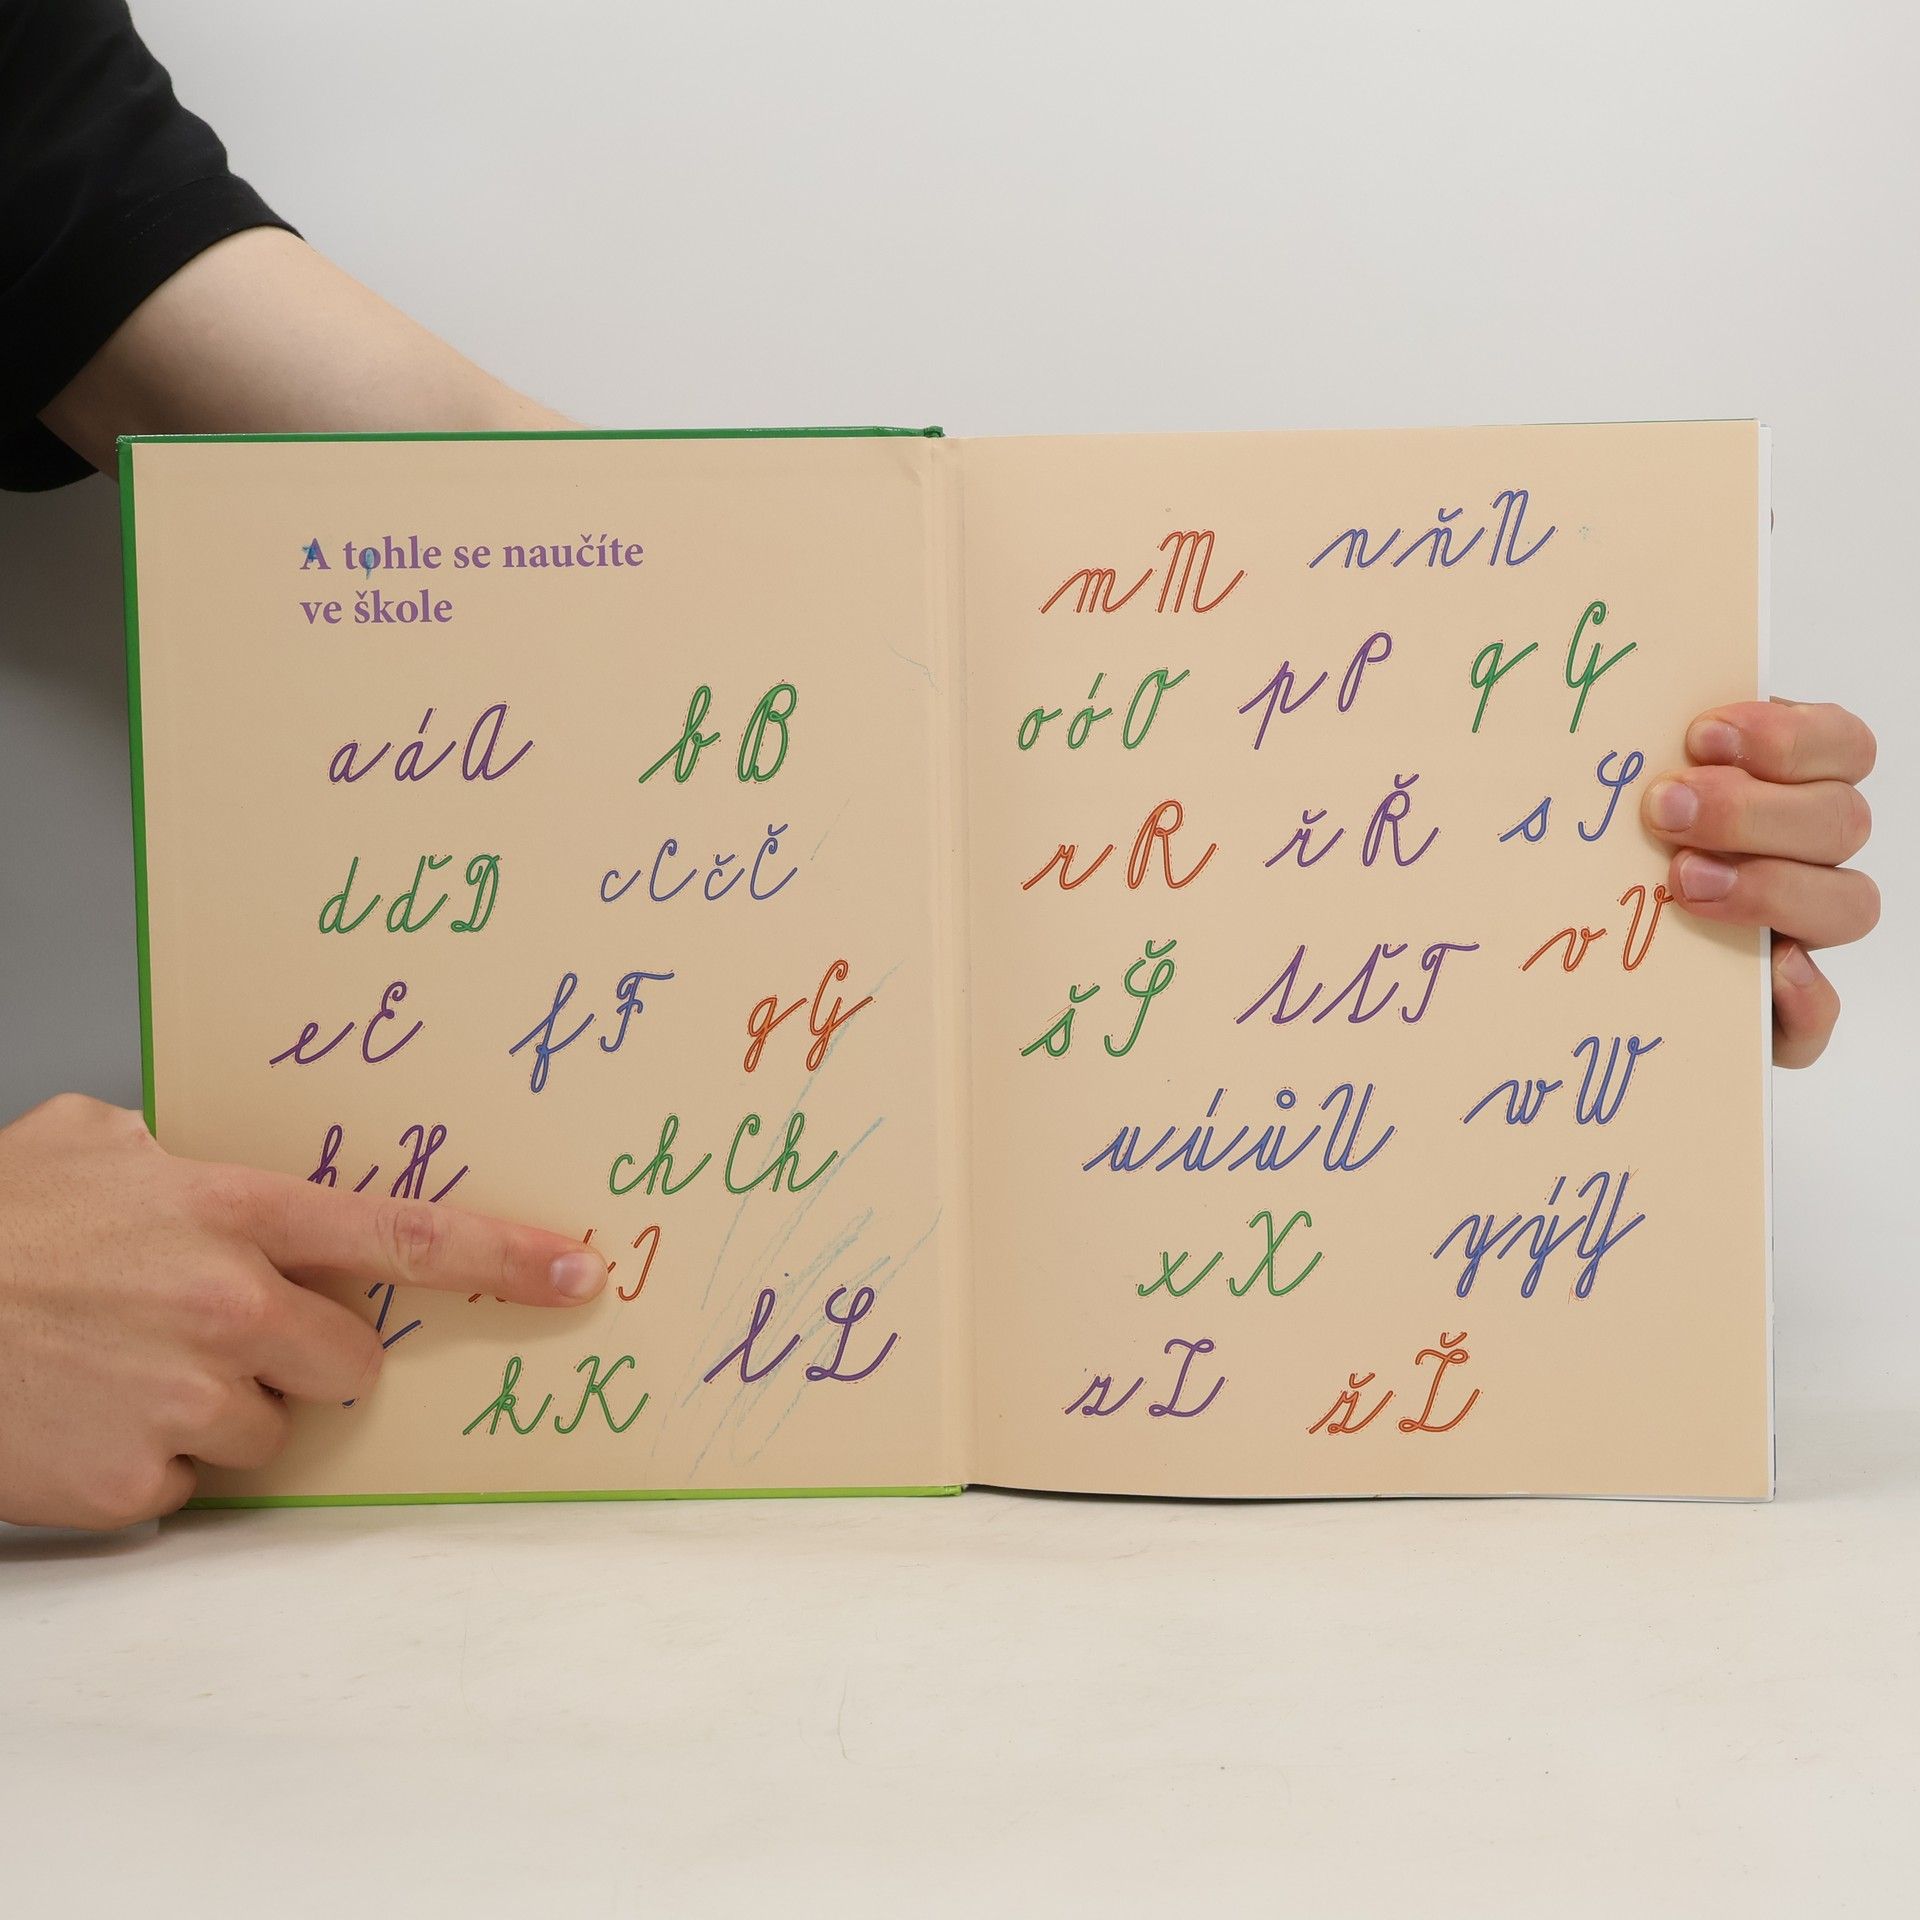 A tohle se naučíte
ve škole
a á A b B
d ď D c C č Č
e E f F g G
h H ch Ch
I
l L
k K
m M n ň N
o ó O p P q Q
r R ř Ř s S
š Š t ť T v V
u ú ů U w W
x X y ý Y
z Z ž Ž